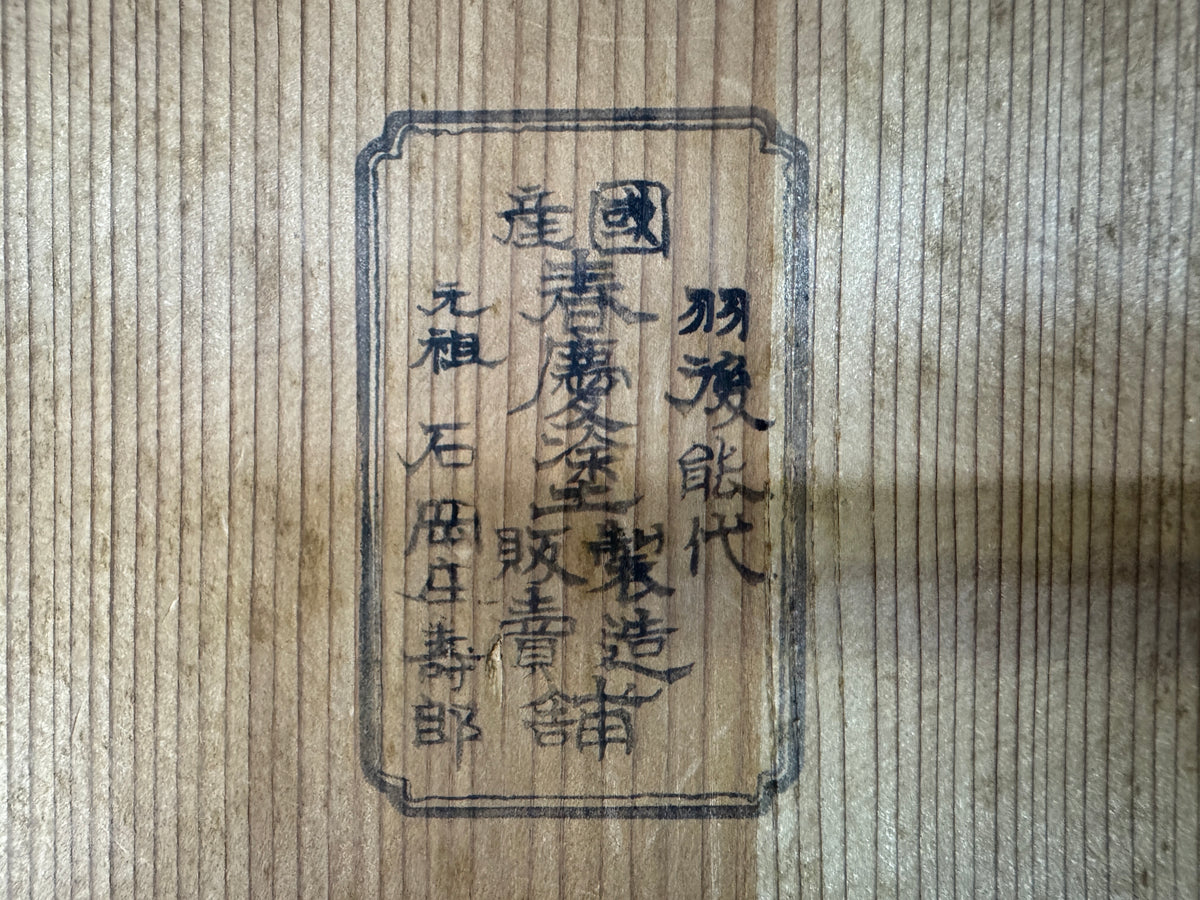 羽後能代
國産
春慶塗
製造
販賣
舖
元祖 石岡庄壽郎